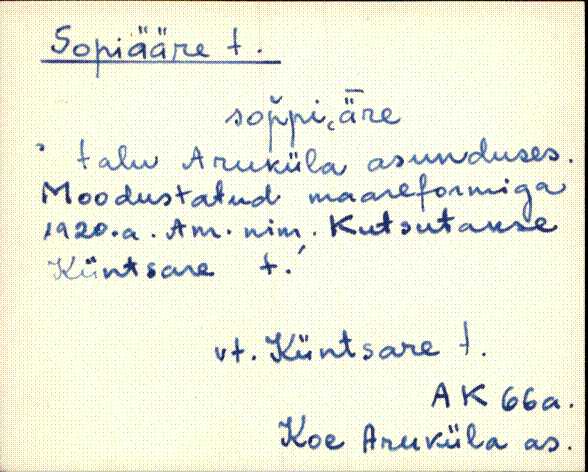 Sopiääre t.
sop̆pi˛ǟre
' talu Aruküla asunduses.
Moodustatud maareformiga
1920.a. Am. nim. Kutsutakse
Küntsare t.'
vt. Küntsare t.
AK 66a.
Koe Aruküla as.